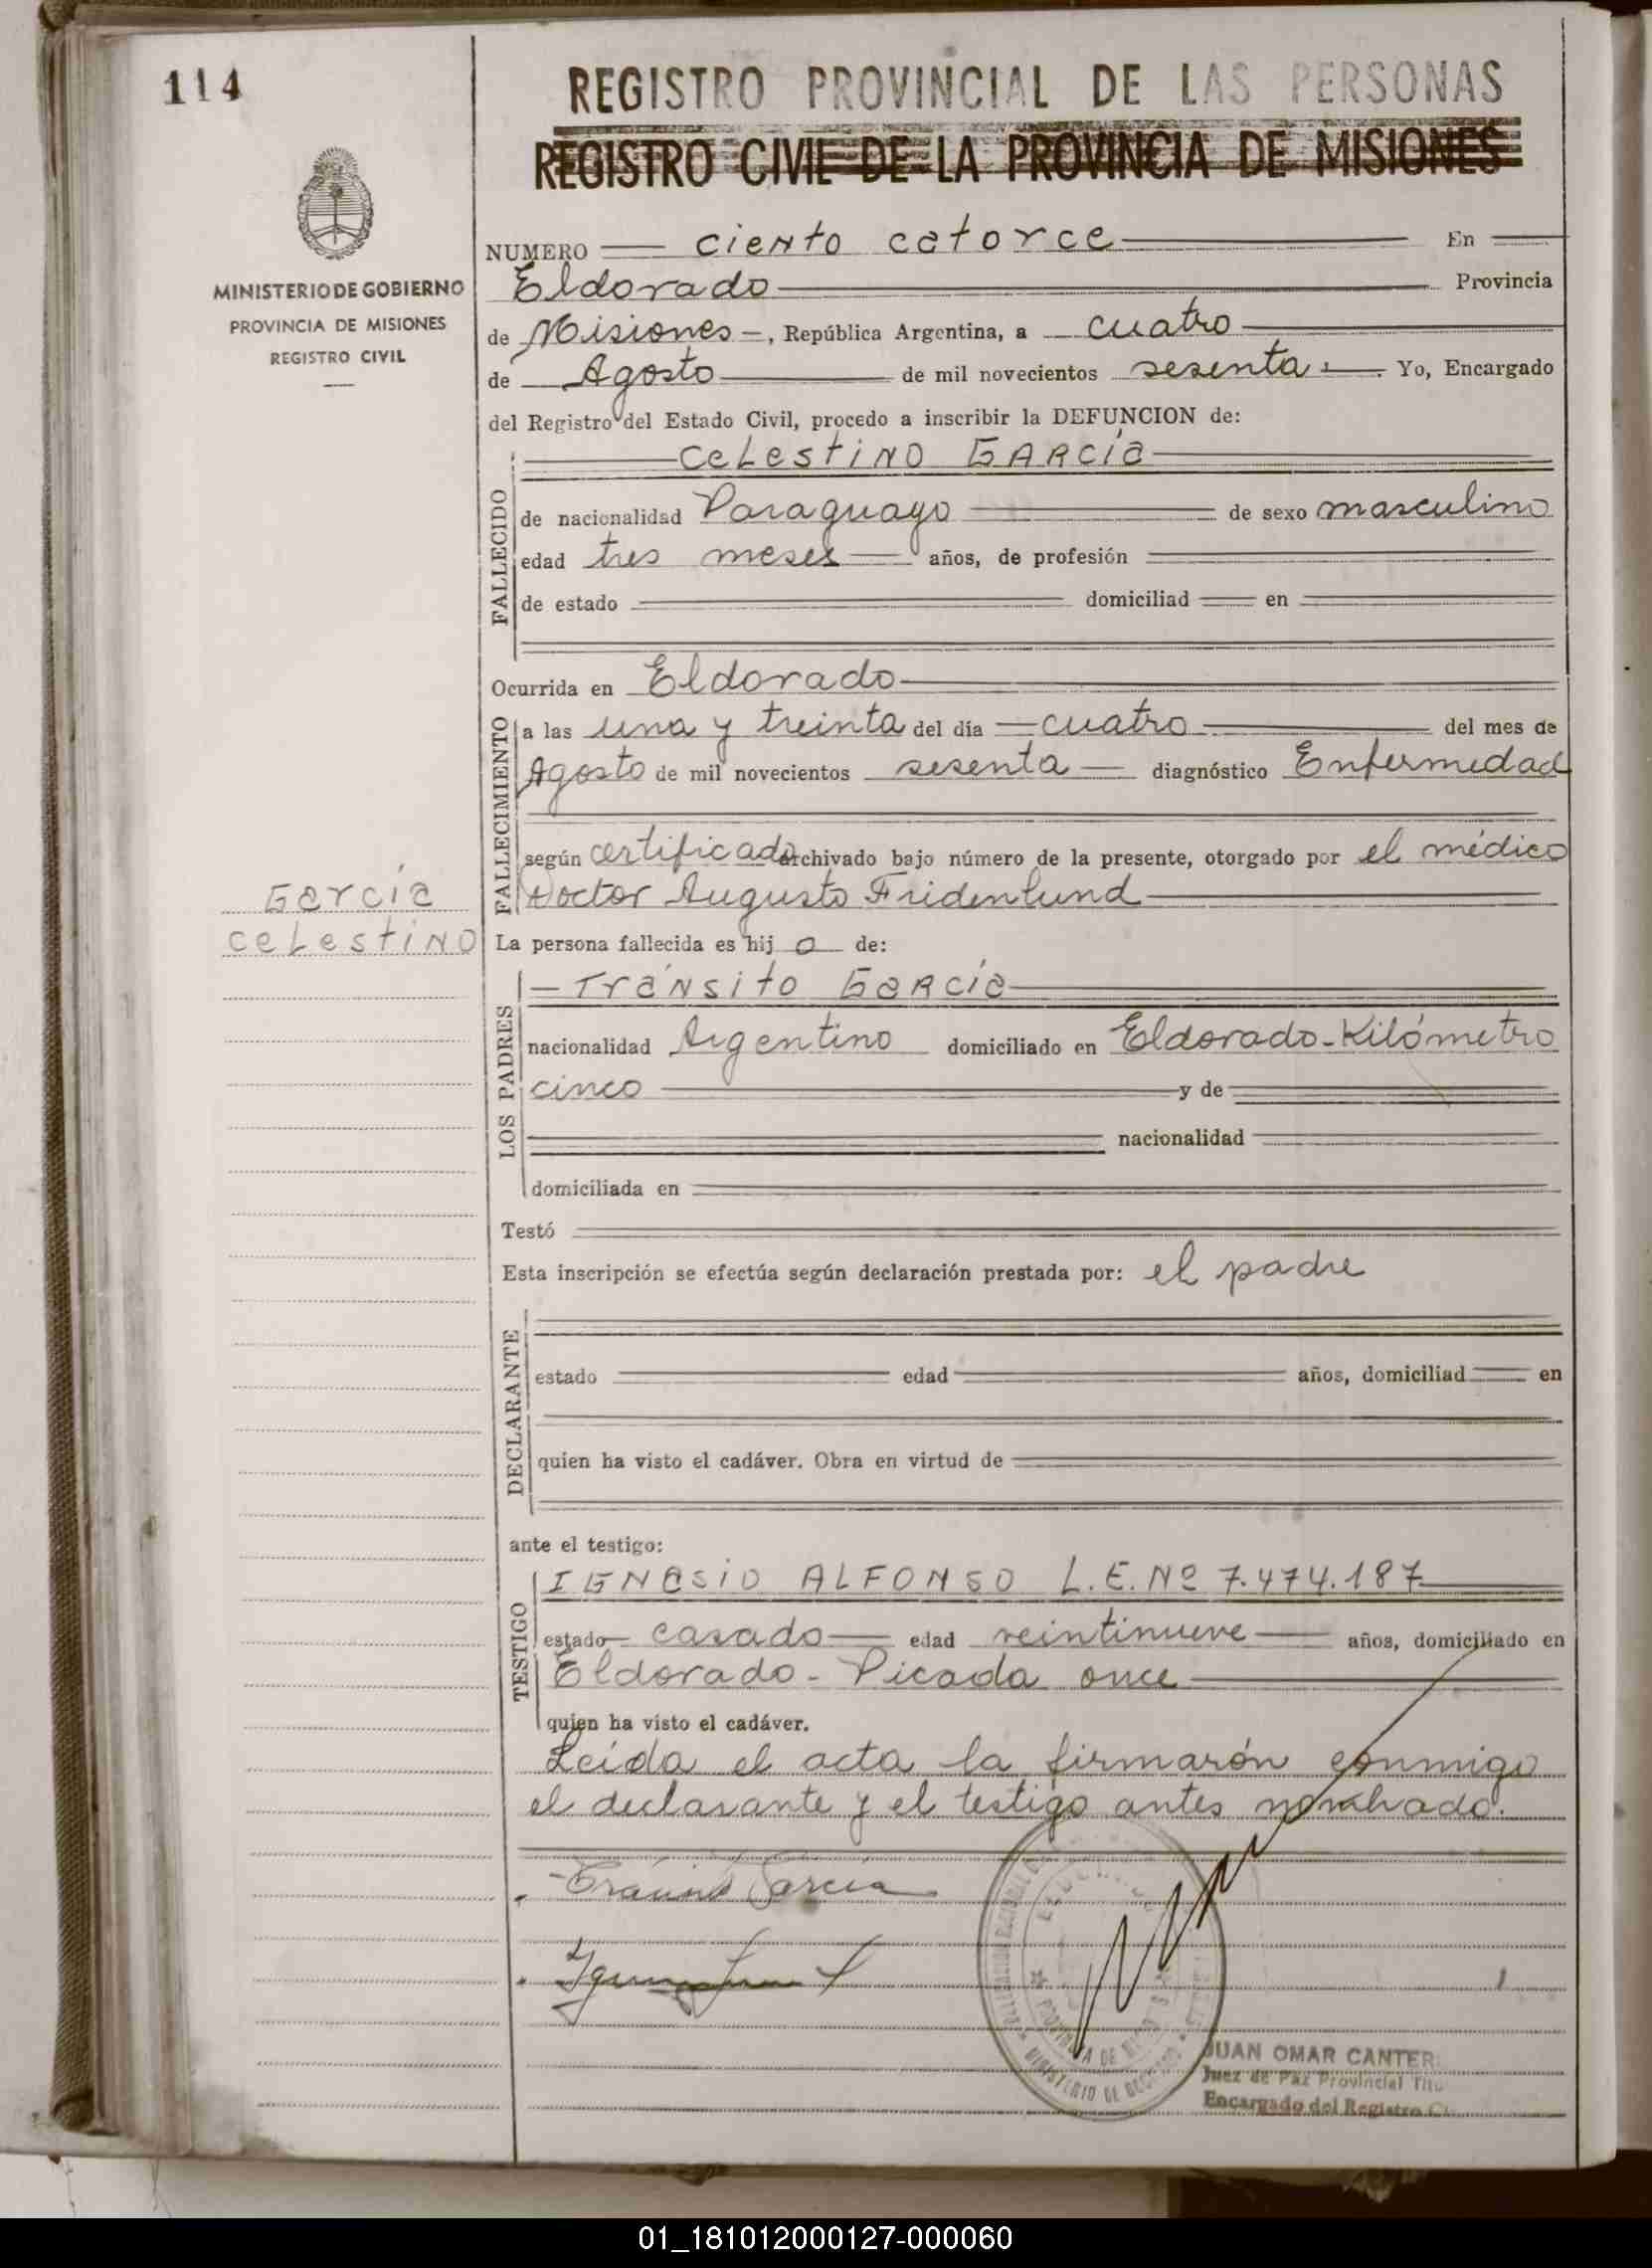 114
REGISTRO PROVINCIAL DE LAS PERSONAS
REGISTRO CIVIL DE LA PROVINCIA DE MISIONES
MINISTERIO DE GOBIERNO
PROVINCIA DE MISIONES
REGISTRO CIVIL
NUMERO ciento catorce En
Eldorado Provincia
de Misiones, República Argentina, a cuatro
de Agosto de mil novecientos sesenta. Yo, Encargado
del Registro del Estado Civil, procedo a inscribir la DEFUNCION de:
FALLECIDO
Celestino García
de nacionalidad Paraguayo de sexo masculino
edad tres meses años, de profesión
de estado domiciliad en
Ocurrida en Eldorado
FALLECIMIENTO
a las una y treinta del día cuatro del mes de
Agosto de mil novecientos sesenta diagnóstico Enfermedad
según certificado archivado bajo número de la presente, otorgado por el médico
Doctor Augusto Fridenlund
García
Celestino
La persona fallecida es hijo de:
LOS PADRES
Tránsito García
nacionalidad Argentino domiciliado en Eldorado-Kilómetro
cinco y de
nacionalidad
domiciliada en
Testó
Esta inscripción se efectúa según declaración prestada por: el padre
DECLARANTE
estado edad años, domiciliad en
quien ha visto el cadáver. Obra en virtud de
ante el testigo:
TESTIGO
IGNASIO ALFONSO L.E.Nº 7.474.187
estado casado edad veintinueve años, domiciliado en
Eldorado - Picada once
quien ha visto el cadáver.
Leída el acta la firmarón conmigo
el declarante y el testigo antes nombrado.
García
JUAN OMAR CANTER
Juez de Paz Provincial Titu
Encargado del Registro C
01_181012000127-000060